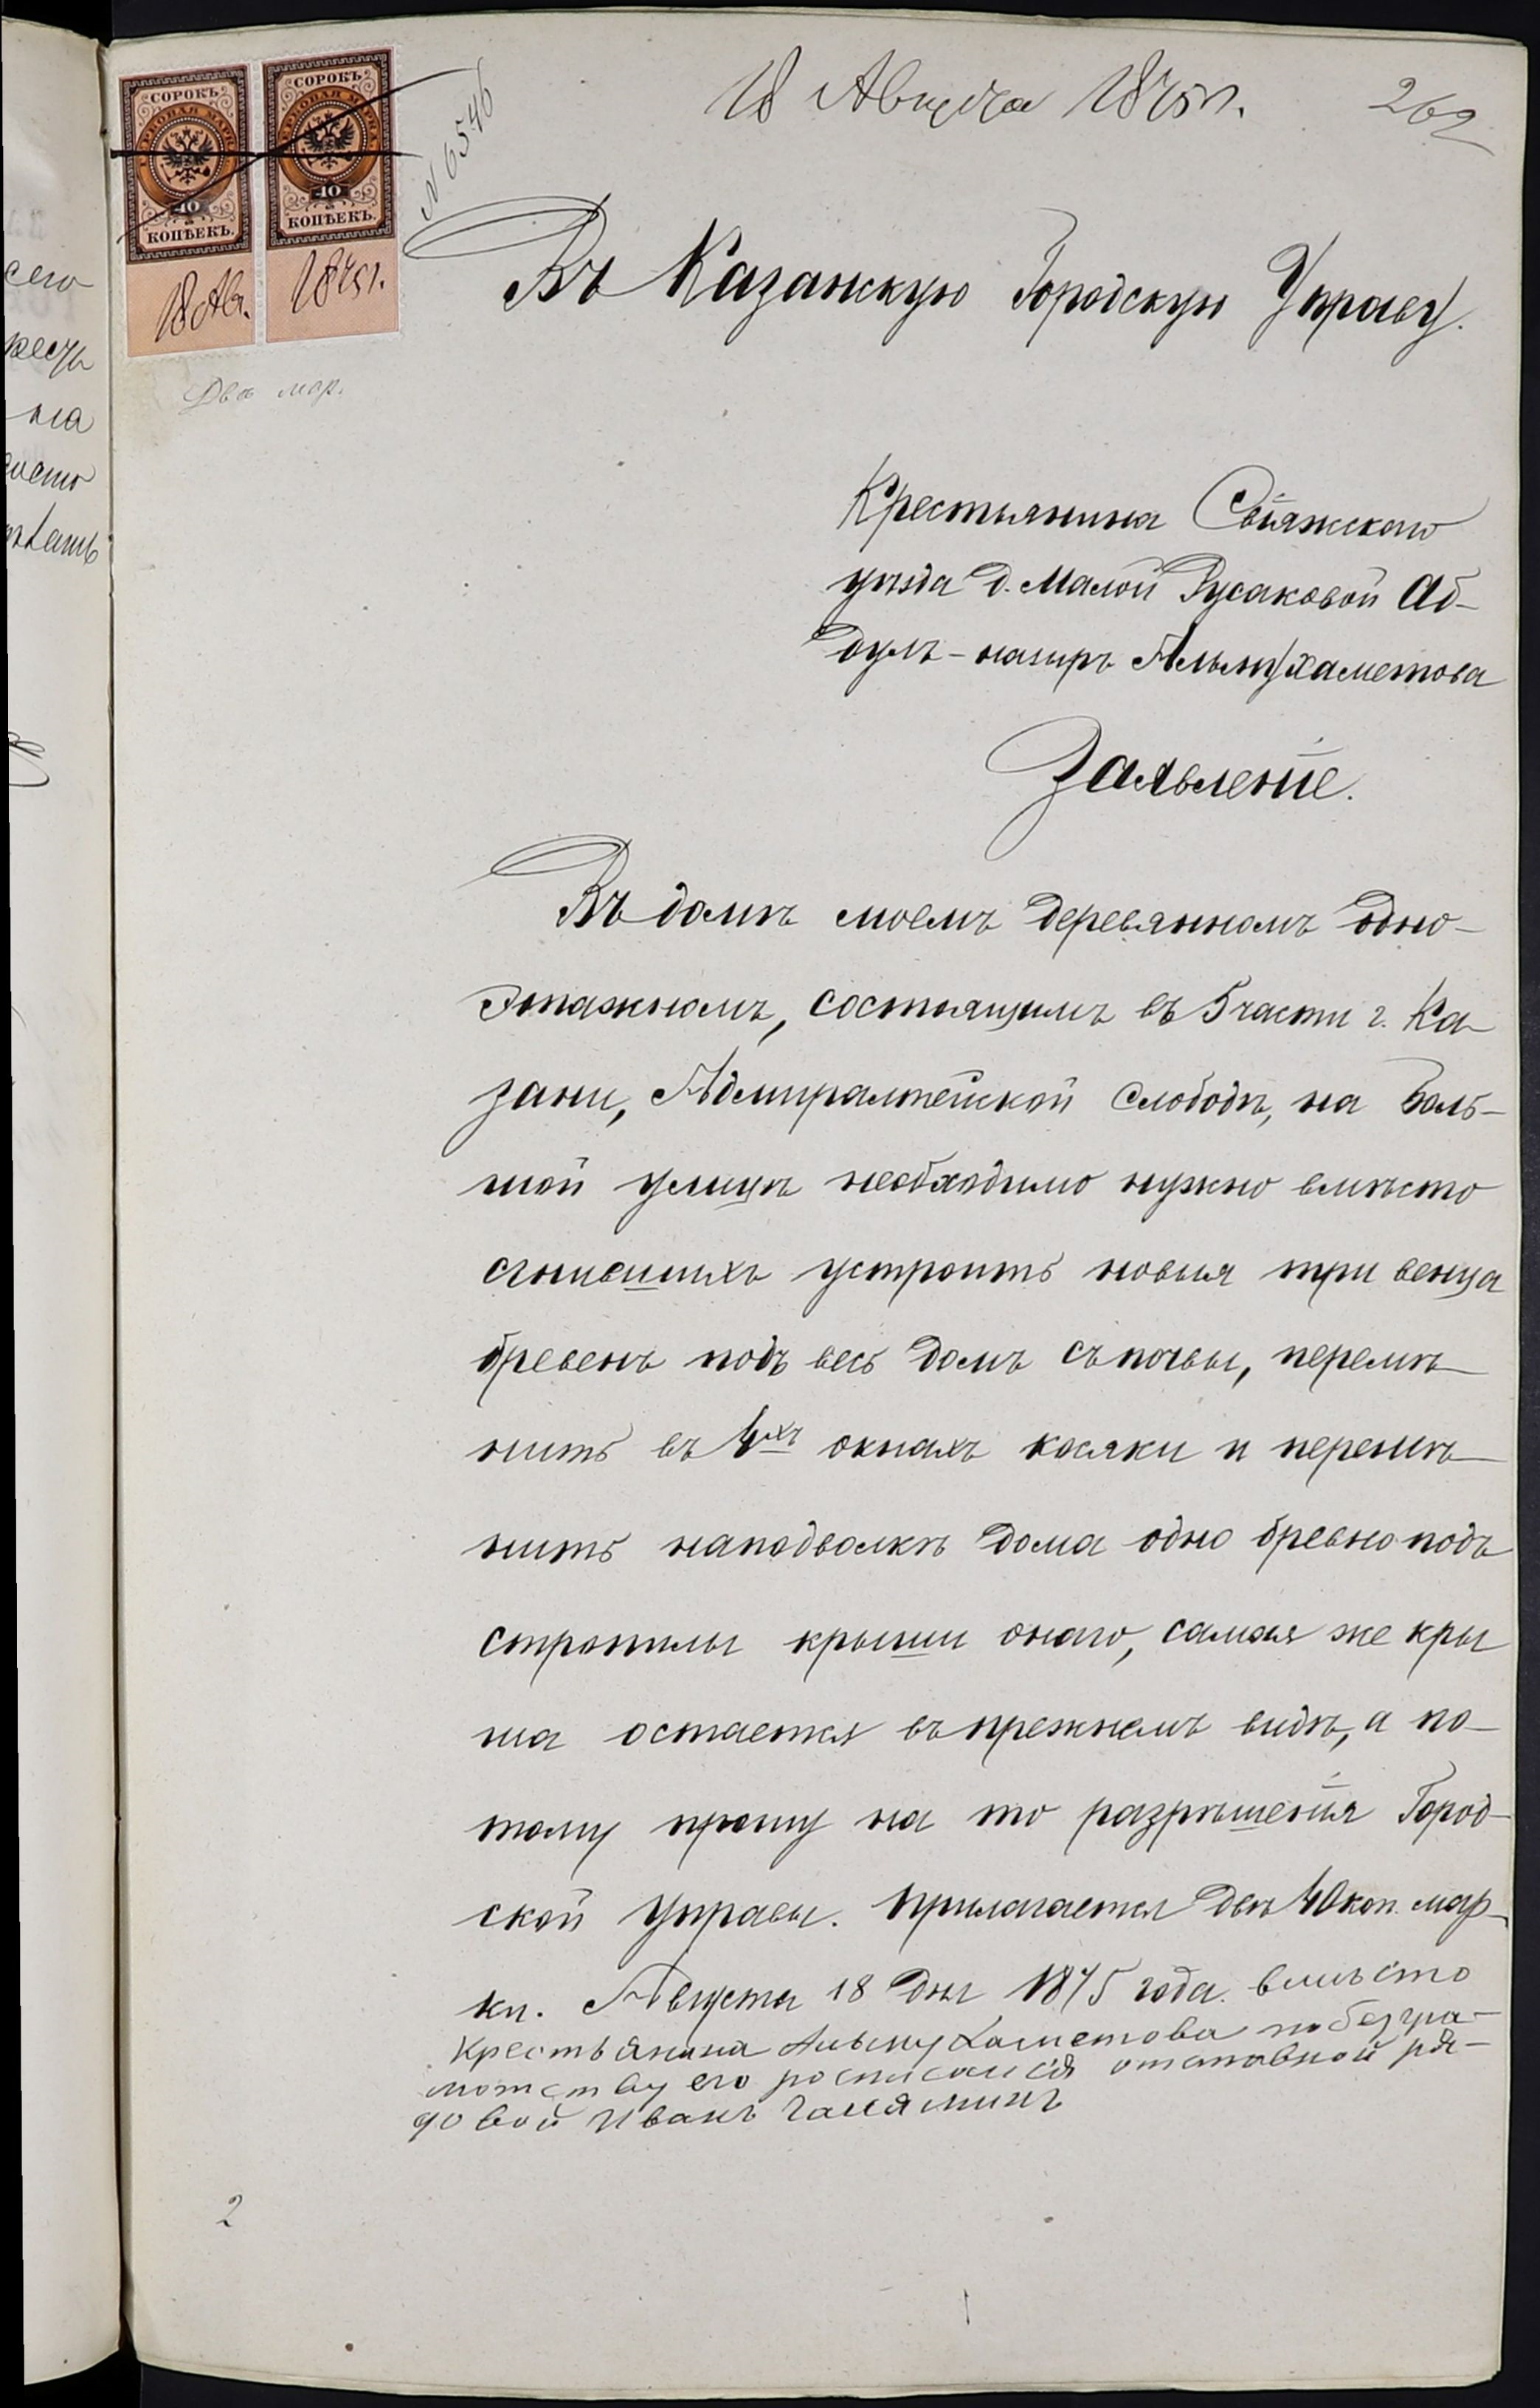 18 Августа 1875 г.
262
СОРОКЪ
ГЕРБОВАЯ МАРКА
40
КОПѢЕКЪ.
18 Авг.
СОРОКЪ
ГЕРБОВАЯ МАРКА
40
КОПѢЕКЪ.
1875 г.
N 6546
Двѣ мар.
Въ Казанскую Городскую Управу.
Крестьянина Свіяжскаго
уѣзда д. Малой Русаковой Аб-
дулъ-назиръ Альмухаметова
Заявленіе.
Въ домѣ моемъ деревянномъ одно-
этажномъ, состоящимъ въ 5 части г. Ка-
зани, Адмиралтейской слободѣ, на Боль-
шой улицѣ необходимо нужно вмѣсто
сгнившихъ устроить новыя три венца
бревенъ подъ весь домъ съ почвы, перемѣ-
нить въ 4хъ окнахъ косяки и перемѣ-
нить на подволкѣ дома одно бревно подъ
стропилы крыши онаго, самая же кры
ша остается въ прежнемъ видѣ, а по-
тому прошу на то разрѣшенія Город-
ской управы. Прилагается двѣ 40 коп. мар-
ки. Августа 18 дня 1875 года. вмѣсто
Крестьянина Альмухаметова по безгра-
мотству его росписался отставной ря-
довой Иванъ
2
сего
на